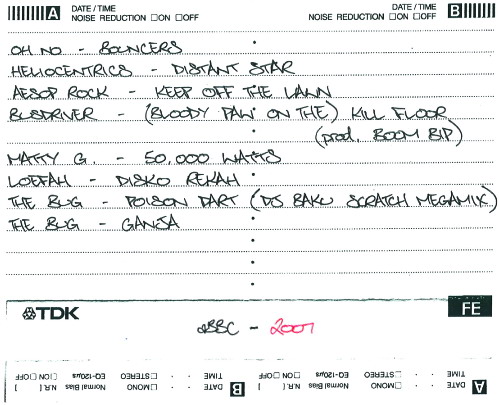 A DATE / TIME DATE / TIME B
NOISE REDUCTION □ON □OFF NOISE REDUCTION □ON □OFF
OH NO - BOUNCERS
HELIOCENTRICS - DISTANT STAR
AESOP ROCK - KEEP OFF THE LAWN
BUSDRIVER - (BLOODY PAW ON THE) KILL FLOOR
(prod. BOOM BIP)
MATTY G. - 50,000 WATTS
LOEFAH - DISKO REKAH
THE BUG - POISON DART (DJ BAKU SCRATCH MEGAMIX)
THE BUG - GANJA
TDK FE
- 2007
A DATE TIME □MONO □STEREO Normal Bias EQ-120μs [N.R. ] □ON □OFF
B DATE TIME □MONO □STEREO Normal Bias EQ-120μs [N.R. ] □ON □OFF